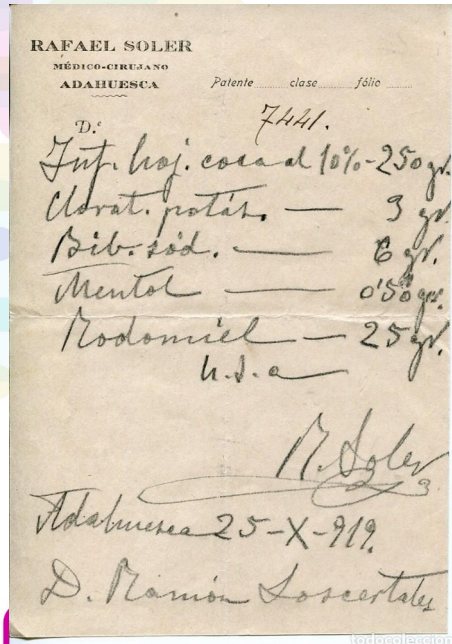 RAFAEL SOLER
MÉDICO-CIRUJANO
ADAHUESCA
Patente ........ clase ........ fólio ........
7441.
D.e
Inf. hoj. coca al 10%-250 gr.
Clorat. potás. — 3 gr.
Bib. sód. — 6 gr.
Mentol — 0'50 gr.
Rodomiel — 25 gr.
h.s.a
R. Soler
Adahuesca 25-X-919.
D. Ramón Loscertales
todocoleccion